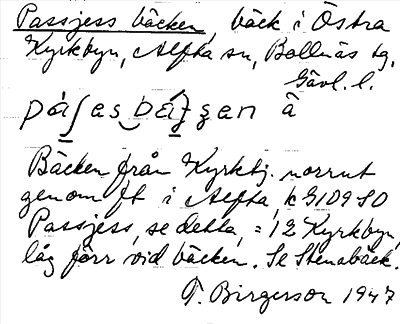 Passjess bäcken, bäck i Östra
Kyrkbyn, Alfta sn, Bollnäs tg,
Gävl. l.
å
Bäcken från Kyrktj. norrut
genom ft i Alfta, k G109 SO
Passjess, se detta, = 12 Kyrkbyn,
låg förr vid bäcken. Se Stenabäck.
T. Birgerson 1947